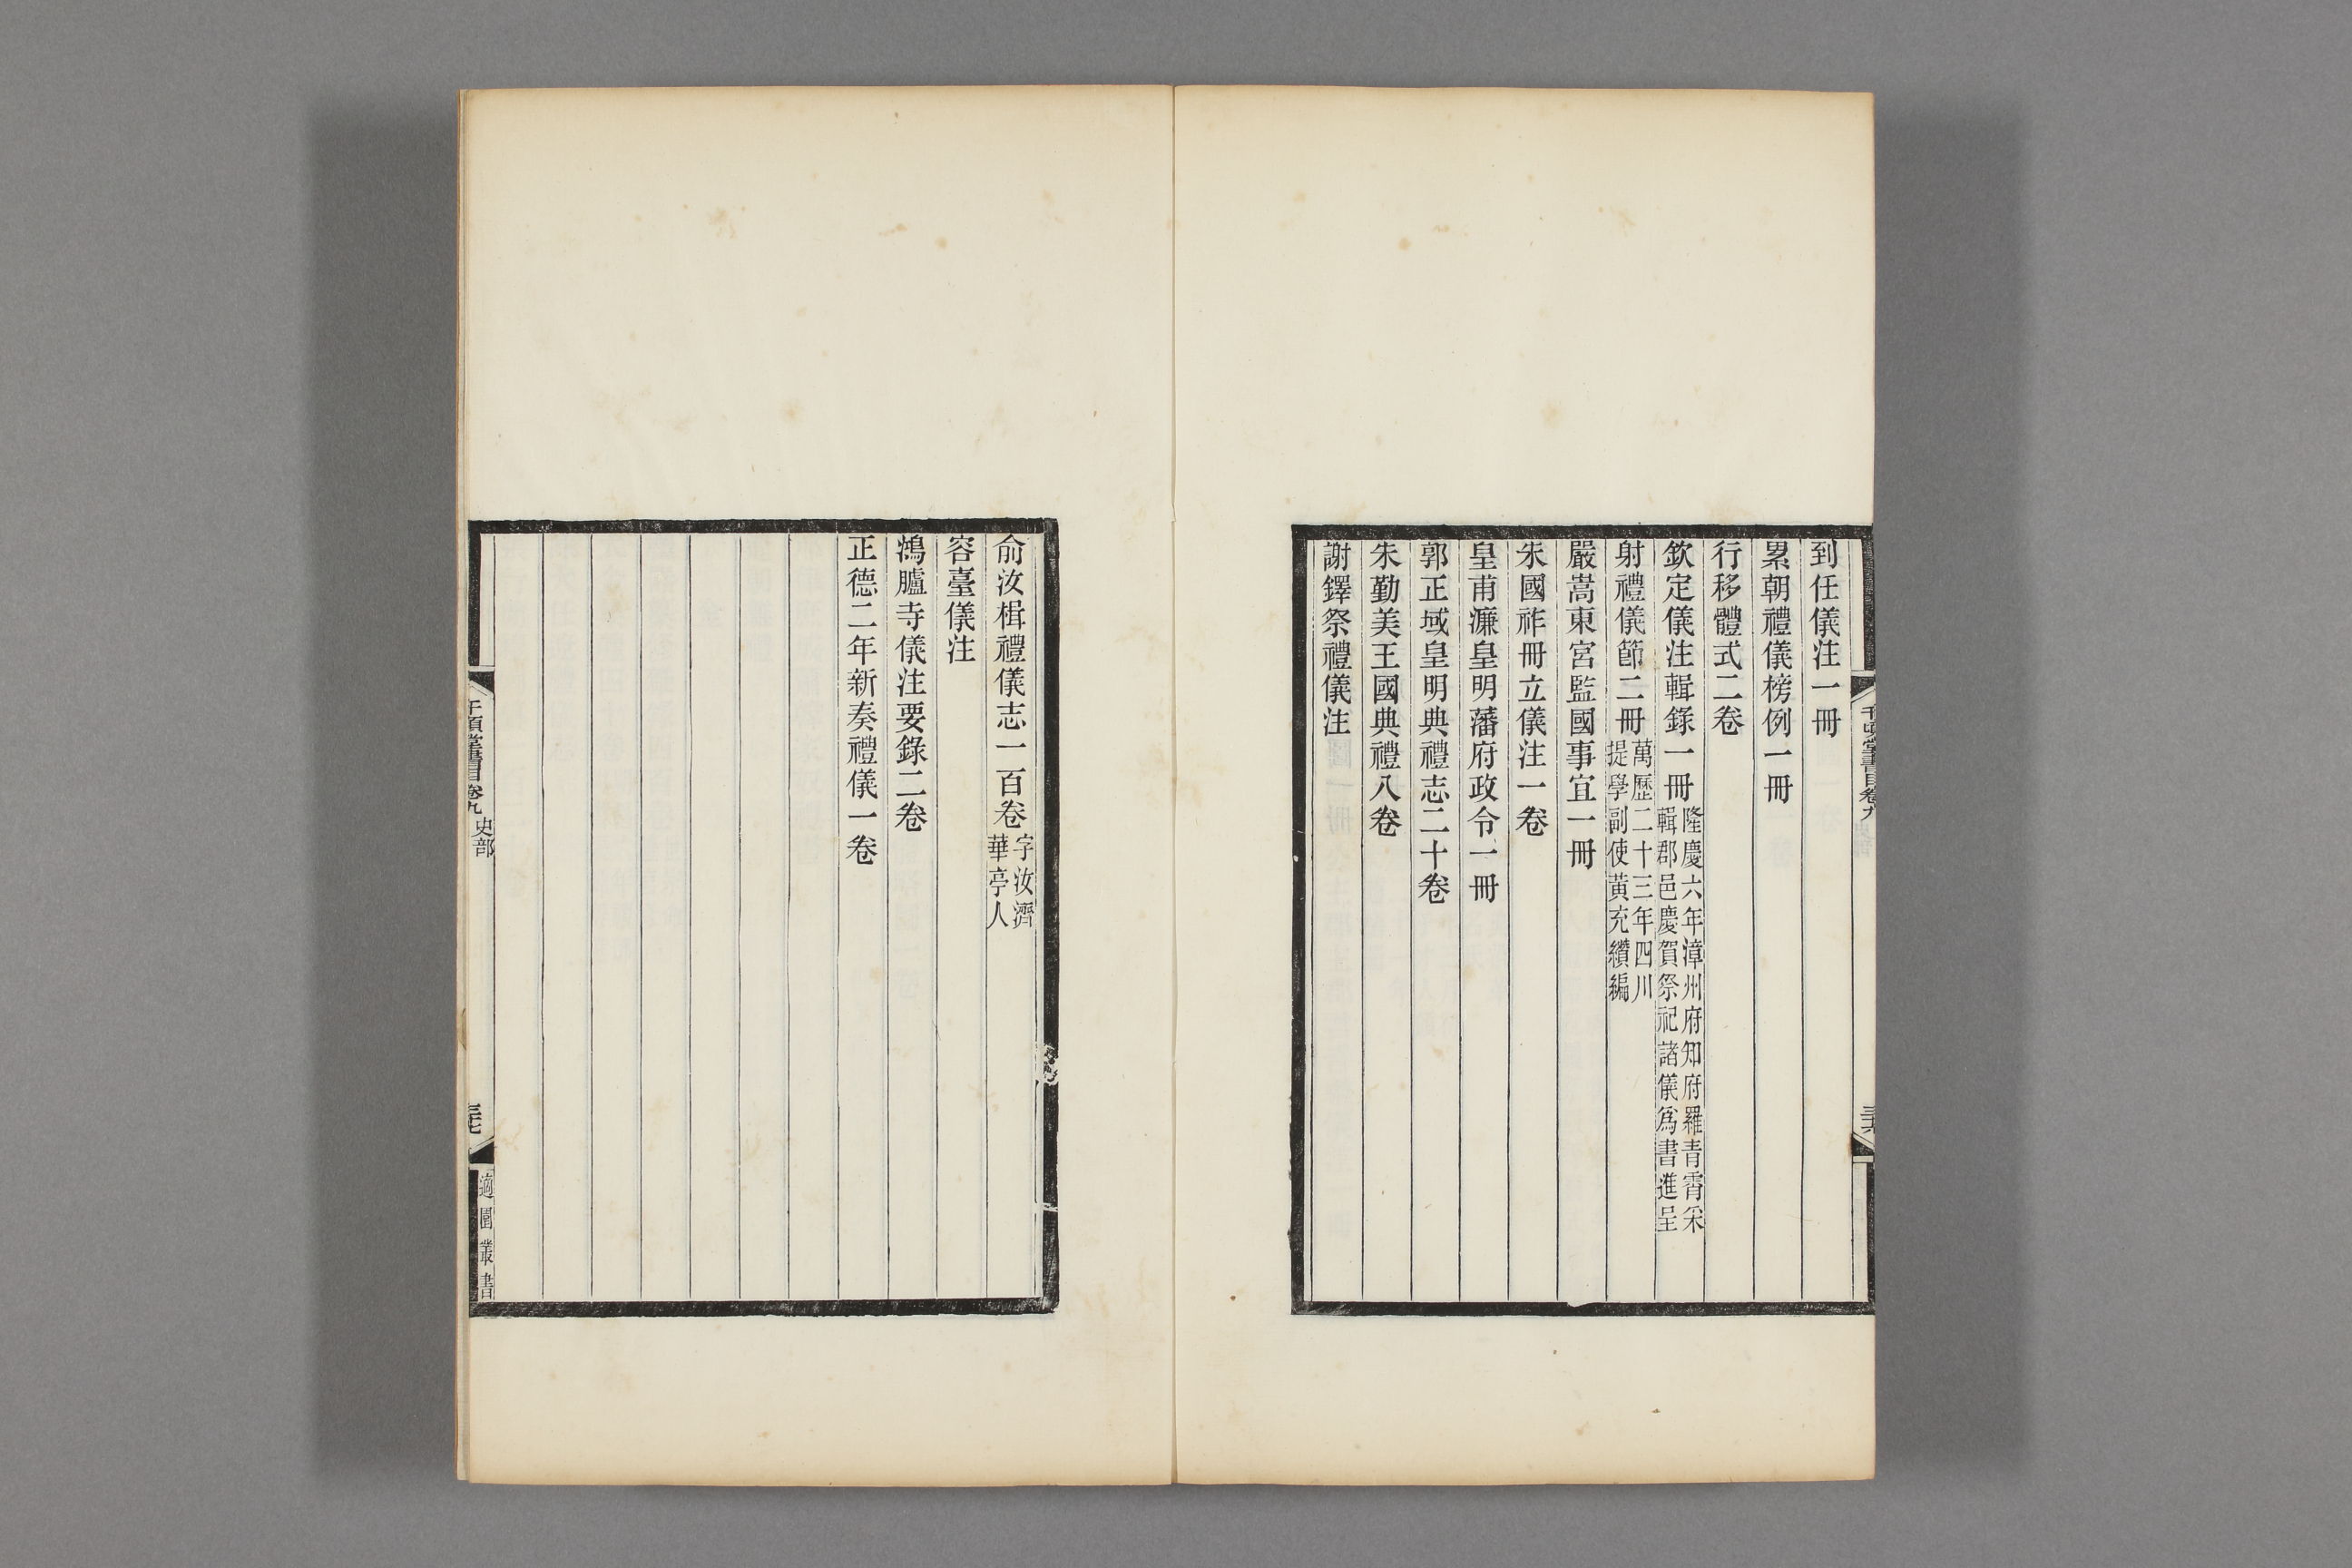 到任儀注一冊
累朝禮儀榜例一冊
行移體式二卷
欽定儀注輯錄一冊隆慶六年漳州府知府羅青霄采
輯郡邑慶賀祭祀諸儀爲書進呈
射禮儀節二冊萬歷二十三年四川
提學副使黃充纘編
嚴嵩東宮監國事宜一冊
朱國祚冊立儀注一卷
皇甫濂皇明藩府政令一冊
郭正域皇明典禮志二十卷
朱勤美王國典禮八卷
謝鐸祭禮儀注
俞汝楫禮儀志一百卷字汝濟
華亭人
容臺儀注
鴻臚寺儀注要錄二卷
正德二年新奏禮儀一卷
千頃堂書目卷九 史部
三十七
適園叢書